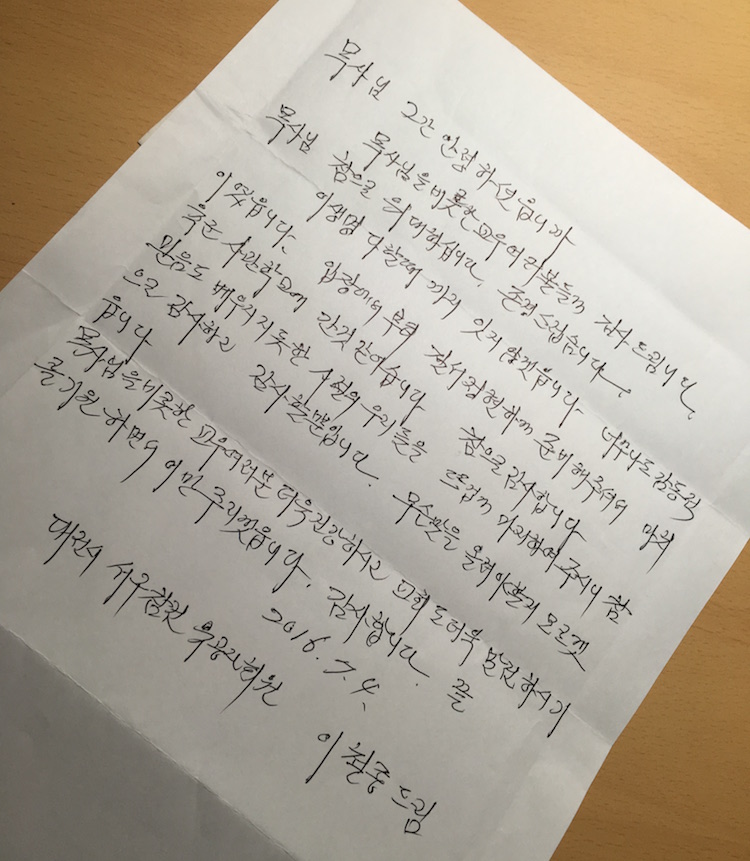 목사님 그간 안령하신읍니까
목사님을 비롯한 교우여러분들께 감사드립니다.
목사님 참으로 위대하십니다. 존경스럽습니다.
이생명 다할때까지 잊지 않겠읍니다 너무나도 감동적
이였읍니다. 입장에서 부터 질서정현하게 준비해주셔서 마치
육군 사관학교에 간것 같아습니다 참으로 감사합니다
믿음도 배우지지못한 시전의 우리들을 뜨겁게 마지하여 주시니 참
으로 감사하고 감사할뿐입니다. 무슨말을 올려야할지 모르겟
읍니다
목사님을 비롯한 교우여러분 더욱건강하시고 교회도더욱 발전하시기
를 기원 하면서 이만 주리겟읍니다. 감사합니다. 끝
2016. 7. 4.
대전시 서구참전 유공지회원
이철중 드림